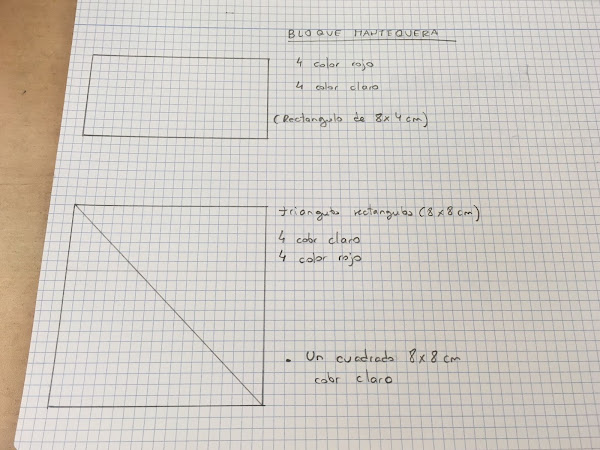 BLOQUE MANTEQUERA
4 color rojo
4 color claro
(Rectangulo de 8x4 cm)
triangulos rectangulos (8x8 cm)
4 color claro
4 color rojo
• Un cuadrado 8x8 cm
color claro